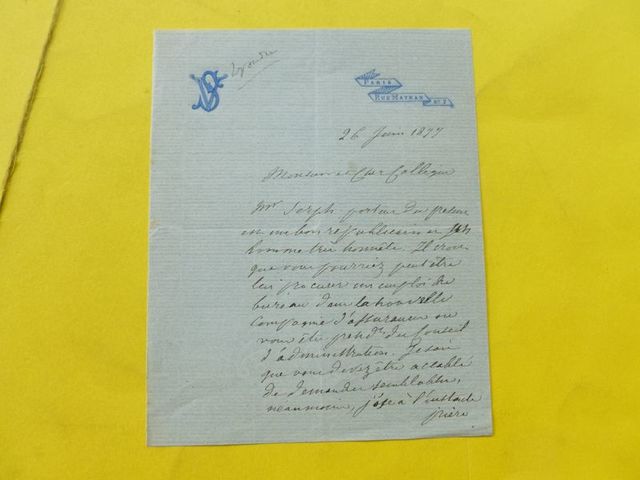 VS
Répondre
PARIS
RUE MAYRAN
N° 7
26 Juin 1877
Monsieur et Cher Collègue
Mr Joseph porteur du présent
est un bon républicain et
homme très honnête. Il croit
que vous pourriez peut être
lui procurer un emploi de
bureau dans la nouvelle
Compagnie d'assurances où
vous êtes présdt du Conseil
d'administration. Je sais
que vous devez être accablé
de demandes semblables,
néanmoins, j'ose à l'instante
prière